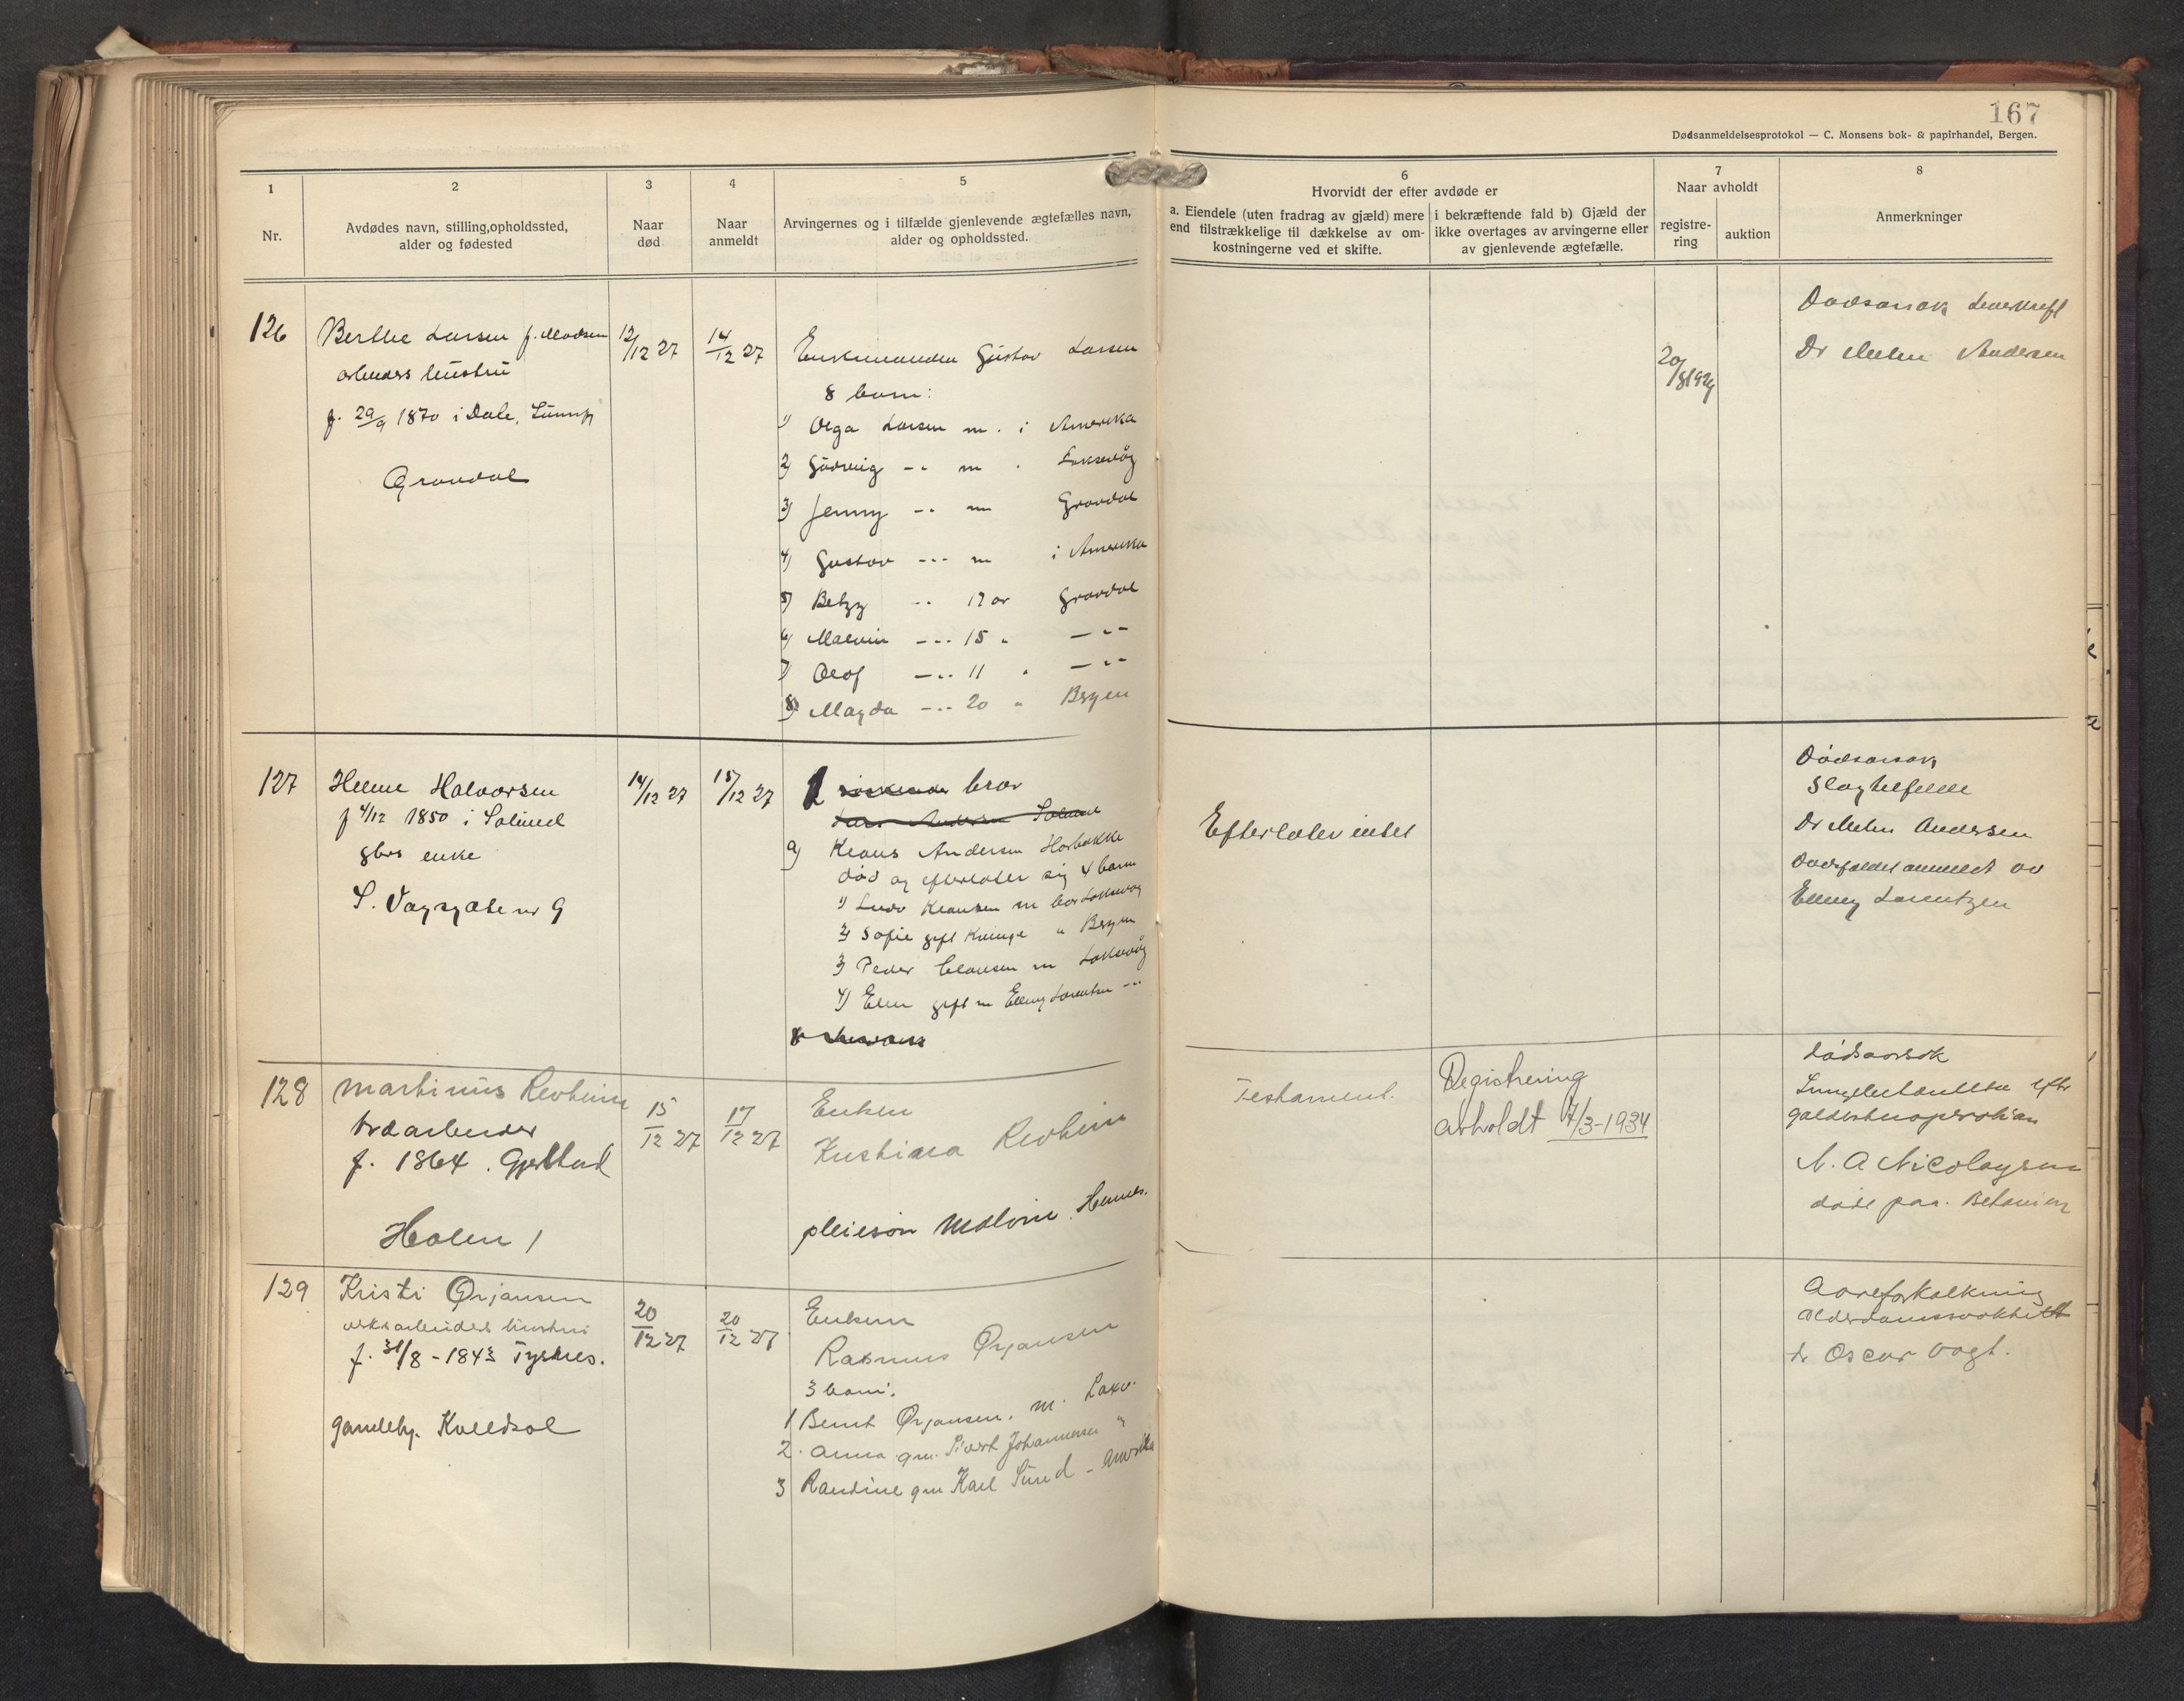 167
Dødsanmeldelsesprotokol — C. Monsens bok- & papirhandel, Bergen.
1
Nr.
2
Avdødes navn, stilling, opholdssted,
alder og fødested
3
Naar
død
4
Naar
anmeldt
5
Arvingernes og i tilfælde gjenlevende ægtefælles navn,
alder og opholdssted.
6
Hvorvidt der efter avdøde er
a. Eiendele (uten fradrag av gjæld) mere
end tilstrækkelige til dækkelse av om-
kostningerne ved et skifte.
i bekræftende fald b) Gjæld der
ikke overtages av arvingerne eller
av gjenlevende ægtefælle.
7
Naar avholdt
registre-
ring
auktion
8
Anmerkninger
126
Berthe Larsen f. Madsen
arbeiders hustru
f. 29/9 1870 i Dale,
Gravdal
12/12 27
14/12 27
Enkemanden Gustav Larsen
8 barn:
1) Olga Larsen m. i Amerika
2) Gudveig -"- m " Laksevåg
3) Jenny -"- m Gravdal
4) Gustav -"- m i Amerika
5) Betzy -"- 17 år Gravdal
6) Malvin -"- 15 " -"-
7) Olof -"- 11 " -"-
8) Magda -"- 20 " Bergen
20/8 1929
Dødsårsak Leverkreft
Dr Andersen
127
Helene Halvorsen
f 4/12 1850 i Solund
gbrs enke
S. Vågsgate nr 9
14/12 27
15/12 27
1 bror
Lars Andersen Solund
a) Klaus Andersen Horbakke
død og efterlater sig 4 barn
1) Ludv Klausen m bor Laksevåg
2) Sofie gift Kvinge " Bergen
3) Peder Clausen m Laksevåg
4) Elen gift m Elling Lorentzen -"-
Efterlater intet
Dødsårsak
Slagtilfelle
Dr Andersen
Dødsfaldet anmeldt av
Elling Lorentzen
128
Martinus Revheim
træarbeider
f. 1864. Gjerstad
Holen 1
15/12 27
17/12 27
Enken
Kristiana Revheim
pleiesøn Malvin
Testament.
Registrering
avholdt 7/3-1934
dødsaarsak
Lungebetændelse efter
galdestensoperation
N. A Nicolaysen
døde paa. Betanien
129
Kristi Ørjansen
verksarbeiders hustru
f. 31/8-1843 Tysnes.
gamlehj. Kveldsol
20/12 27
20/12 27
Enkem
Rasmus Ørjansen
3 barn:
1 Bernt Ørjansen. m. Laxv.
2. Anna gm. Sivert Johannesen "
3 Randine gm Karl Sund - Amerika
Aareforkalkning
alderdomssvakhet
dr Oscar Vogt.